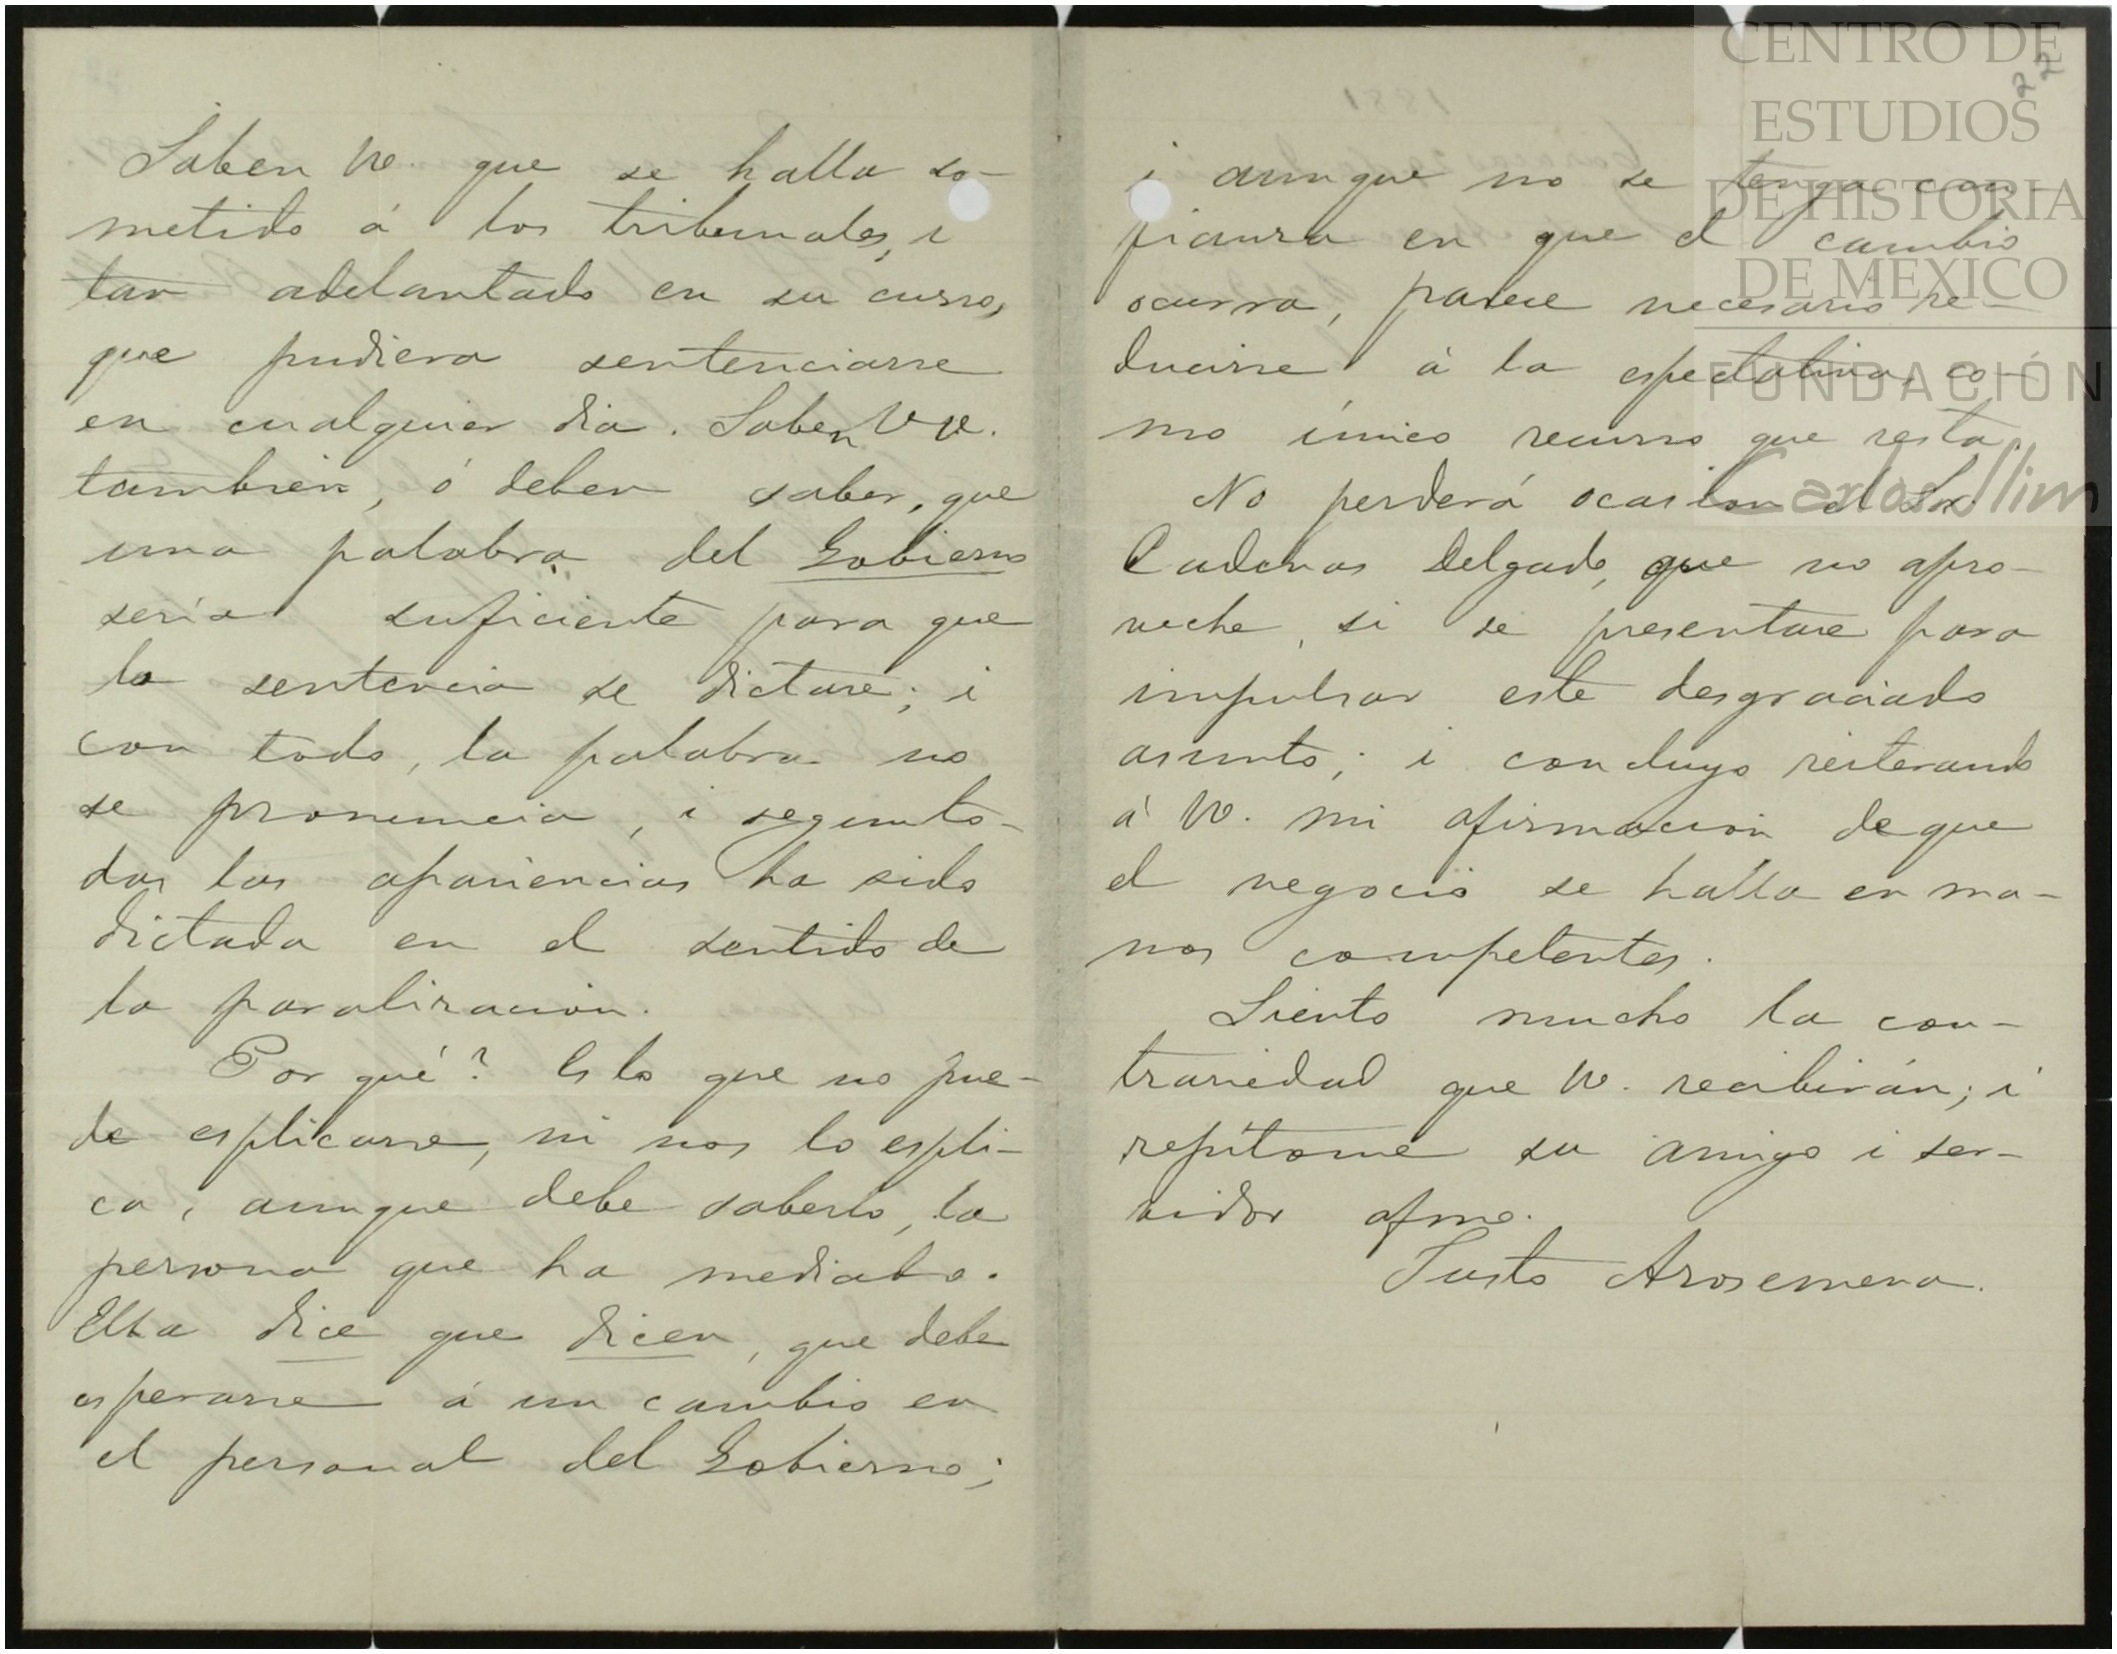 Saben VV. que se halla so-
metido á los tribunales, i
tan adelantado en su curso,
que pudiera sentenciarse
en cualquier dia. Saben VV.
tambien, ó deben saber, que
una palabra del Gobierno
sería suficiente para que
la sentencia se dictase; i
con todo, la palabra no
se pronuncia, i segun to-
das las apariencias ha sido
dictada en el sentido de
la paralizacion.
Por qué? Es lo que no pue-
de esplicarse, ni nos lo espli-
ca, aunque debe saberlo, la
persona que ha mediado.
Ella dice que dicen, que debe
esperarse á un cambio en
el personal del Gobierno;
22
1881
i aunque no se tenga con-
fianza en que el cambio
ocurra, parece necesario re-
ducirse á la espectativa, co-
mo único recurso que resta.
No perderá ocasion el Sr.
Cadenas Delgado, que no apro-
veche, si se presentase para
impulsar este desgraciado
asunto; i concluyo reiterando
á VV. mi afirmacion de que
el negocio se halla en ma-
nos competentes.
Siento mucho la con-
trariedad que VV. recibirán; i
repítome su amigo i ser-
vidor afmo.
Justo Arosemena.
CENTRO DE
ESTUDIOS
DE HISTORIA
DE MEXICO
FUNDACIÓN
Carlos Slim